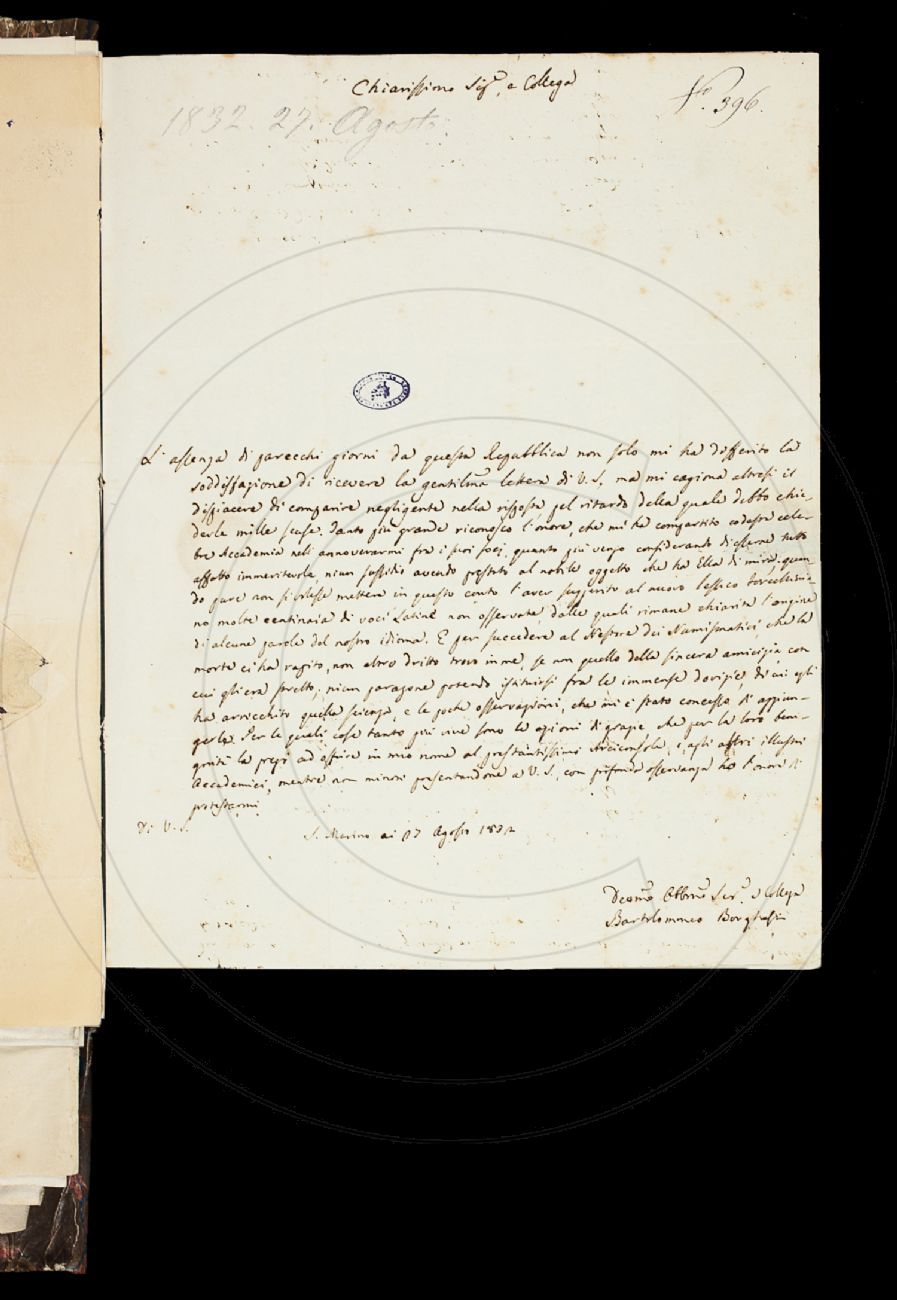 Chiarissimo Sig.r e Collega
No. 396.
1832. 27. Agosto.
L'assenza di parecchi giorni da questa Repubblica non solo mi ha differito la
soddisfazione di ricevere la gentilma lettera di V. S. ma mi cagiona altresì il
dispiacere di comparire negligente nella risposta, pel ritardo della quale debbo chie-
derle mille scuse. Tanto più grande riconosco l'onore, che mi ha compartito codesta cele-
bre Accademia nell'annoverarmi fra i suoi socj, quanto più vengo considerando di esserne tutto
affatto immeritevole, niun sussidio avendo prestato al nobile oggetto che ha Ella di mira, quan-
do pure non si volesse mettere in questo conto l'aver suggerito al nuovo lessico torcellinia-
no molte centinaia di voci Latine non osservate, dalle quali rimane chiarita l'origine
di alcune parole del nostro idioma. E per succedere al Nestore dei Numismatici, che la
morte ci ha rapito, non altro dritto trovo in me, se non quello della sincera amicizia, con
cui gli era stretto; niun paragone potendo istituirsi fra le immense dovizie, di cui egli
ha arricchito quella scienza, e le poche osservazioni, che mi è stato concesso di aggiun-
gerle. Per le quali cose tanto più vive sono le azioni di grazie che per la loro beni-
gnità la prego ad offrire in mio nome al prestantissimo Arciconsolo, e agli altri illustri
Accademici, mentre non minori presentandone a V. S. con profonda osservanza ho l'onore di
protestarmi
Di V. S.
S. Marino ai 27 Agosto 1832
Devmo Obbmo Ser.e e Collega
Bartolommeo Borghesi